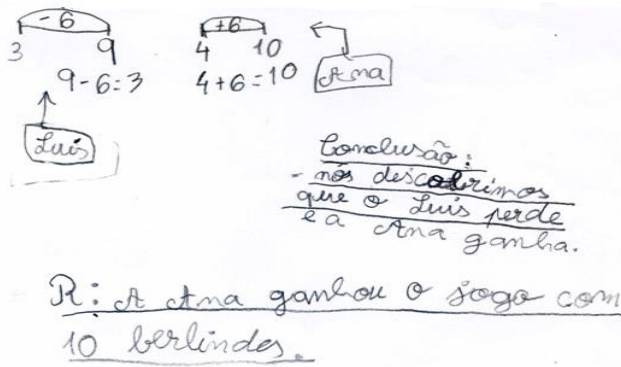 -6
+6
3 9
4 10
9-6=3
4+6=10
Ana
Luís
Conclusão:
- nós descobrimos
que o Luís perde
e a Ana ganha.
R: A Ana ganhou o jogo com
10 berlindes.